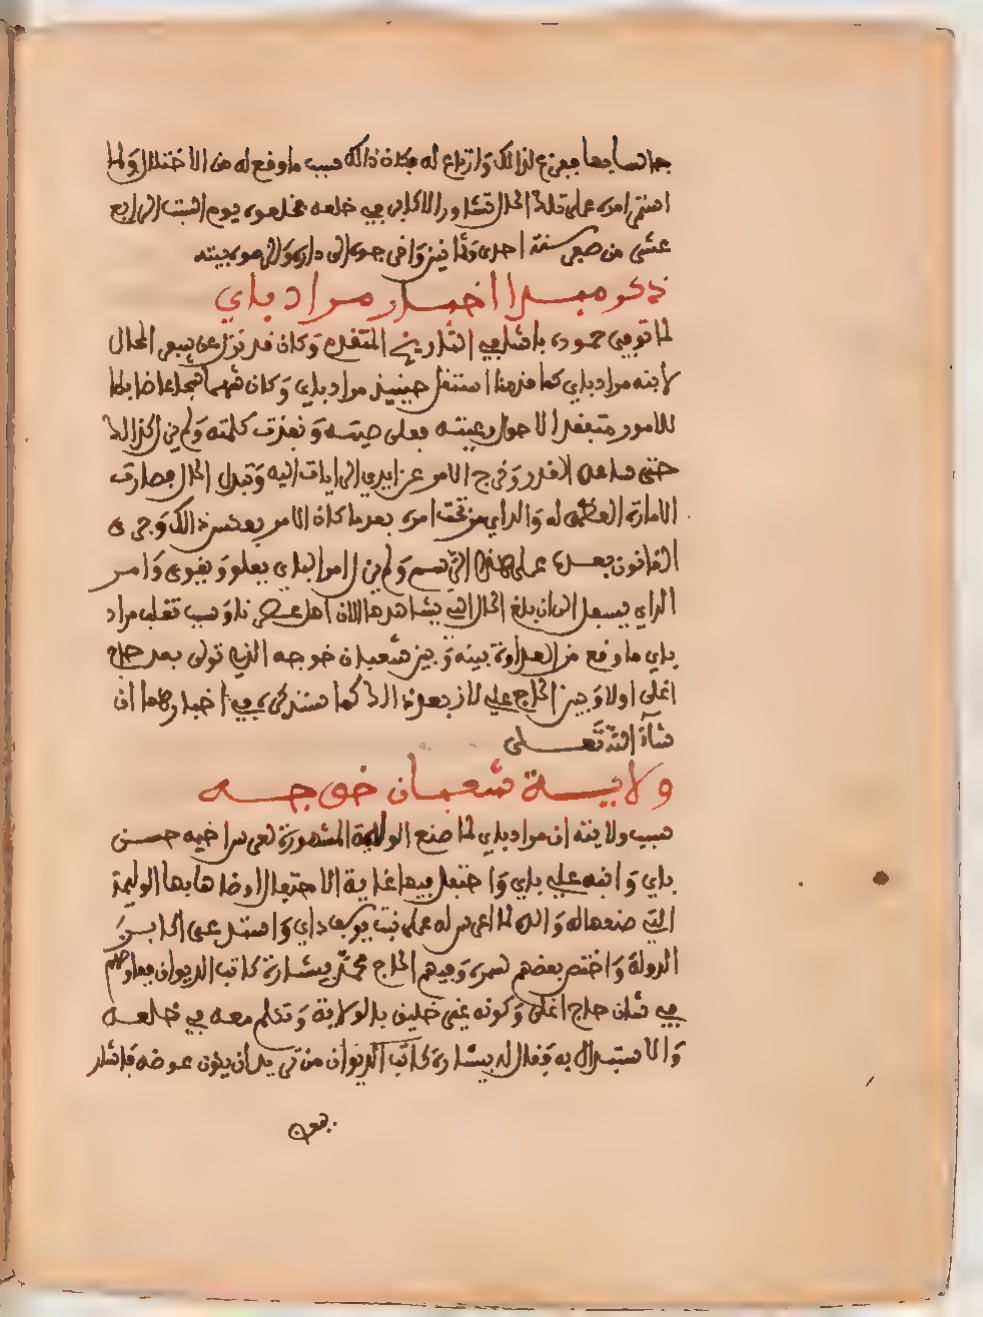 جانسابها ففزع لذالك وارتاع له فكان ذالك سبب ما وقع له من الاختلال ولما
استمر امره على تلك الحال تشاور الاكابر في خلعه فخلعوه يوم السبت الرابع
عشر من صفر سنة احدى وثمانين والف جوه الى داره والزموه بيته
ذكر مبدا اخبار مراد باي
لما توفي حمودة باشا في التاريخ المتقدم وكان قد نزل عن جميع المحال
لابنه مراد باي كما قدمنا استقل حينيذ مراد باي وكان شهما شجاعا ضابطا
للامور متفقدا لاحوال رعيته فعلى صيته ونفذت كلمته ولم يزل كذالك
حتى ساعده القدر وخرج الامر عن ايدي الدايات اليه وتبدل الحال فصارت
الامارة العظمى له والداي من تحت امره بعد ما كان الامر بعكس ذالك وجرى
القانون بعده على هذا الرسم ولم يزل امر الباي يعلو ويقوى وامر
الداي يسفل الى ان بلغ الحال التي يشاهدها الان اهل عصرنا وسبب تغلب مراد
باي ما وقع من العداوة بينه وبين شعبان خوجه الذي تولى بعد حاج
اغلى اولا وبين الحاج علي لاز بعد ذالك كما سنذكره في اخبارهما ان
شآء الله تعلى
ولاية شعبان خوجه
سبب ولايته ان مراد باي لما صنع الولاية المشهورة لعرس اخيه حسن
باي وابنه علي باي واحتفل فيها غاية الاحتفال وضاها بها الوليمة
التي صنعها له والده لما اعرس له على بنت يوسف داي واستدعى اكابر
الدولة واختص بعضهم لسمره وفيهم الحاج محمد بيشارة كاتب الديوان فعاوضهم
في شان حاج اغلى وكونه غير خليق بالولاية وتكلم معه في خلعه
والاستبدال به فقال له بيشارة كاتب الديوان من تريد ان يكون عوضه فاشار